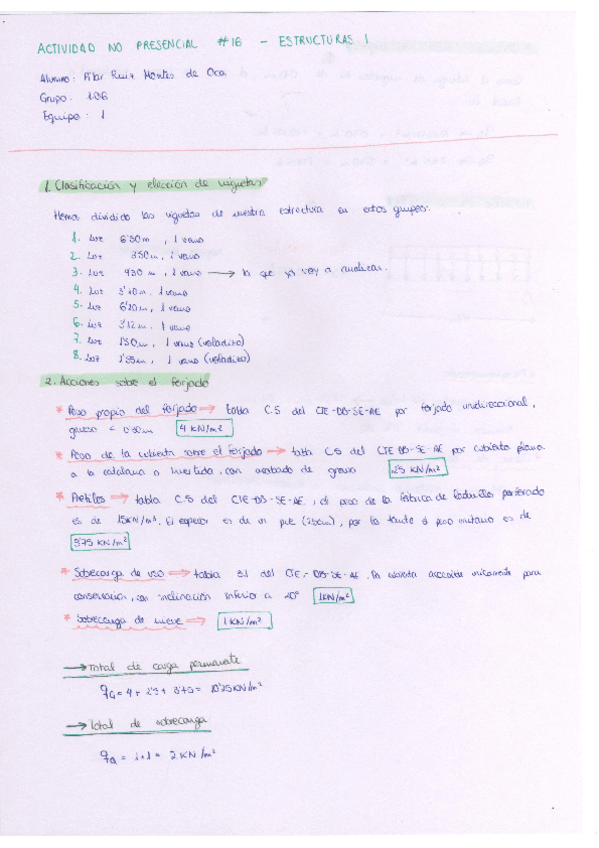 ACTIVIDAD NO PRESENCIAL #16 - ESTRUCTURAS 1
Alumno: Pilar Ruiz Montes de Oca
Grupo: 106
Equipo: 1
1. Clasificación y elección de viguetas
Hemos dividido las viguetas de nuestra estructura en estos grupos:
1. Luz 6'50m, 1 vano
2. Luz 3'50m, 1 vano
3. Luz 4'30m, 1 vano → la que yo voy a analizar.
4. Luz 3'10m, 1 vano
5. Luz 6'20m, 1 vano
6. Luz 3'12m, 1 vano
7. Luz 1'50m, 1 vano (voladizo)
8. Luz 1'55m, 1 vano (voladizo)
2. Acciones sobre el forjado
* Peso propio del forjado → tabla C.5 del CTE-DB-SE-AE por forjado unidireccional,
grueso < 0'30m 4 KN/m²
* Peso de la cubierta sobre el forjado → tabla C.5 del CTE-DB-SE-AE por cubierta plana
a la catalana o invertida, con acabado de grava 2'5 KN/m²
* Petos → tabla C.5 del CTE-DB-SE-AE, el peso de la fábrica de ladrillo perforado
es de 15KN/m³. El espesor es de un pie (25cm), por lo tanto el peso unitario es de
3'75 KN/m²
* Sobrecarga de uso → tabla 3.1 del CTE-DB-SE-AE. En cubierta accesible únicamente para
conservación, con inclinación inferior a 20° 1KN/m²
* Sobrecarga de nieve → 1 KN/m²
→ Total de carga permanente
qG = 4 + 2'5 + 3'75 = 10'25 KN/m²
→ Total de sobrecarga
qQ = 1+1 = 2 KN/m²